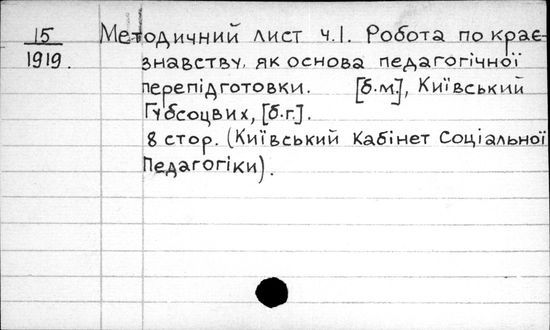 15 Методичний лист ч.1. Робота по крає-
1919. знавству, як основа педагогічної
перепідготовки. [б.м.], Київський
Губсоцвих, [б.г.].
8 стор. (Київський Кабінет Соціальної
Педагогіки).